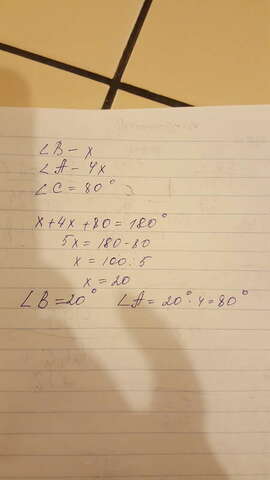 ∠B - x
∠A - 4x
∠C = 80°
x + 4x + 80 = 180°
5x = 180 - 80
x = 100 : 5
x = 20
∠B = 20° ∠A = 20° · 4 = 80°